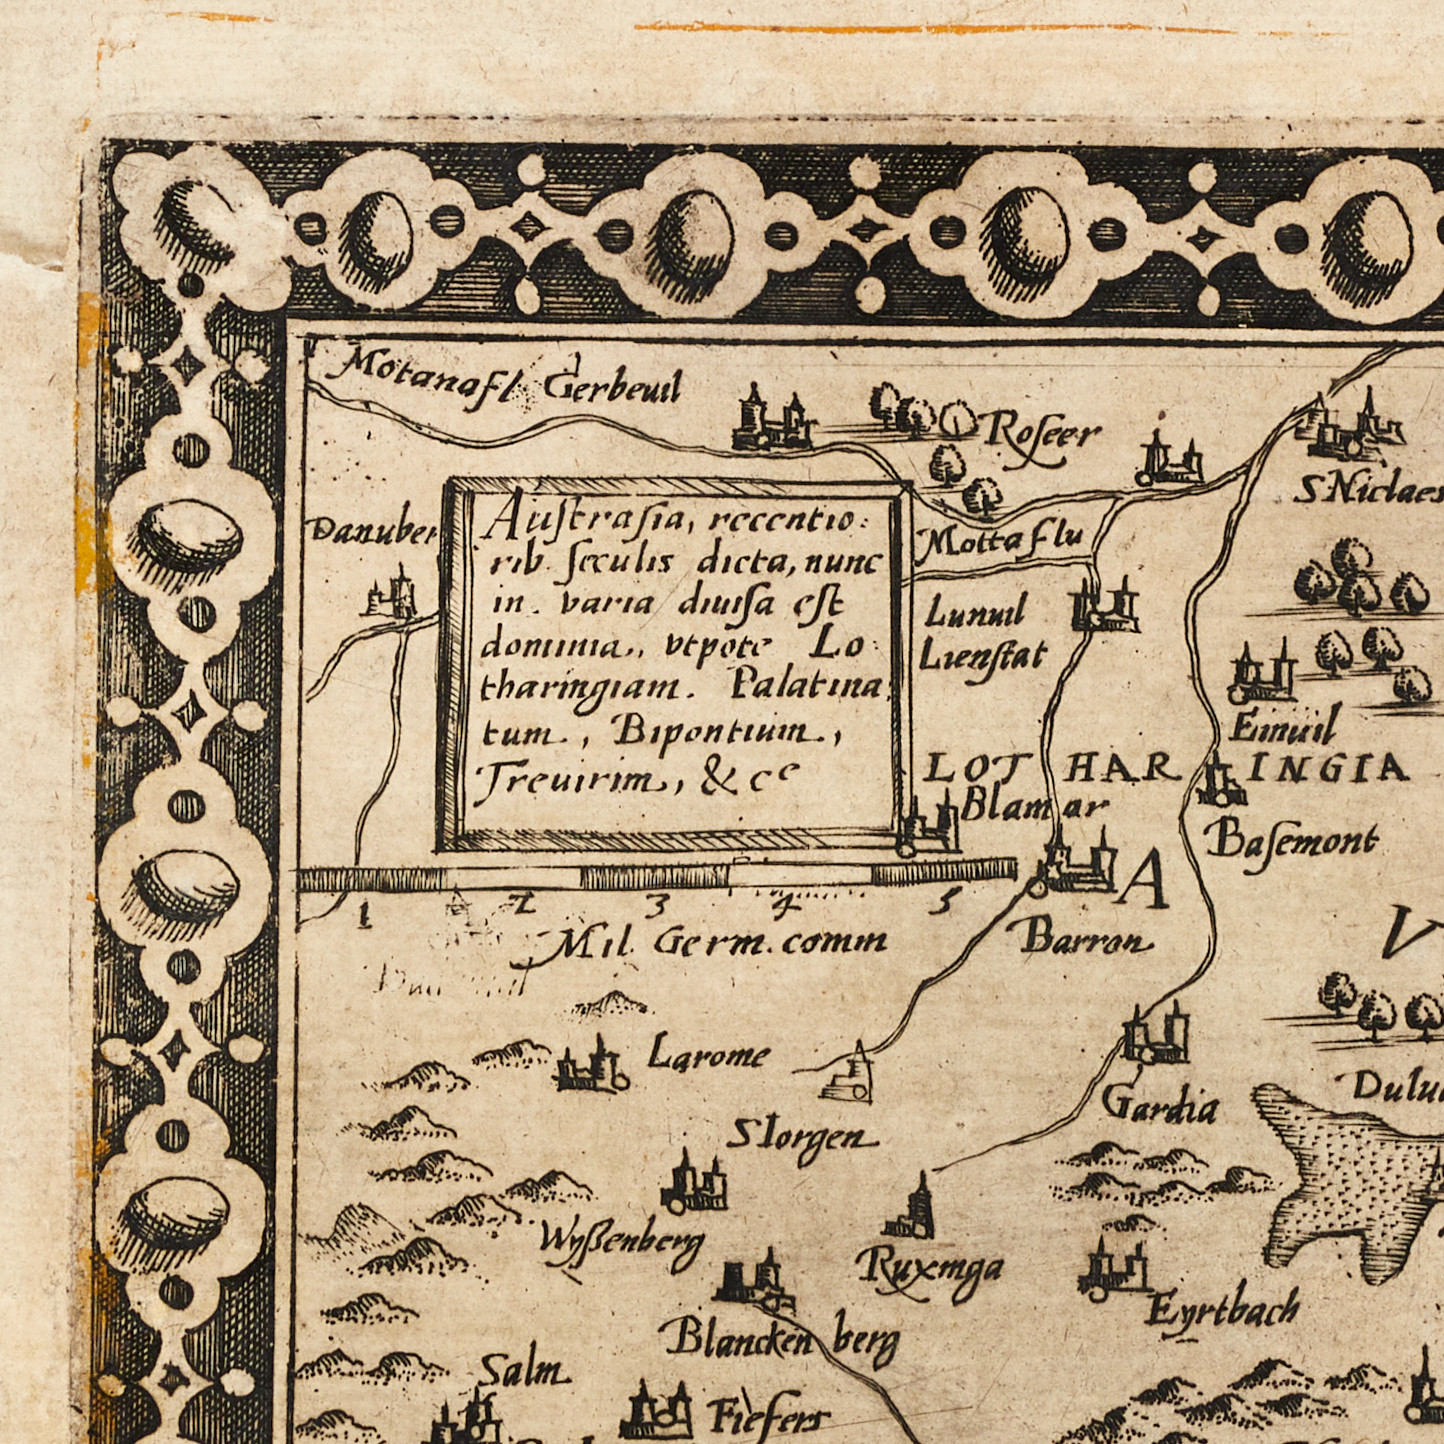 Motana fl Gerbeuil
Roseer
S Niclaes
Danuber
Austrasia, recentio:
rib. seculis dicta, nunc
in. varia diuisa est
dominia., vtpote Lo:
tharingiam. Palatina
tum., Bipontium.,
Treuirim., & ce
Motta flu
Lunuil
Lienstat
Einuil
LOT HAR INGIA
Blamar
Basemont
A
1 2 3 4 5
Mil. Germ. comm
Barron
V
Larome
S Iorgen
Gardia
Dulu
Wyßenberg
Ruxinga
Eyrtbach
Blancken berg
Salm
Fiefers